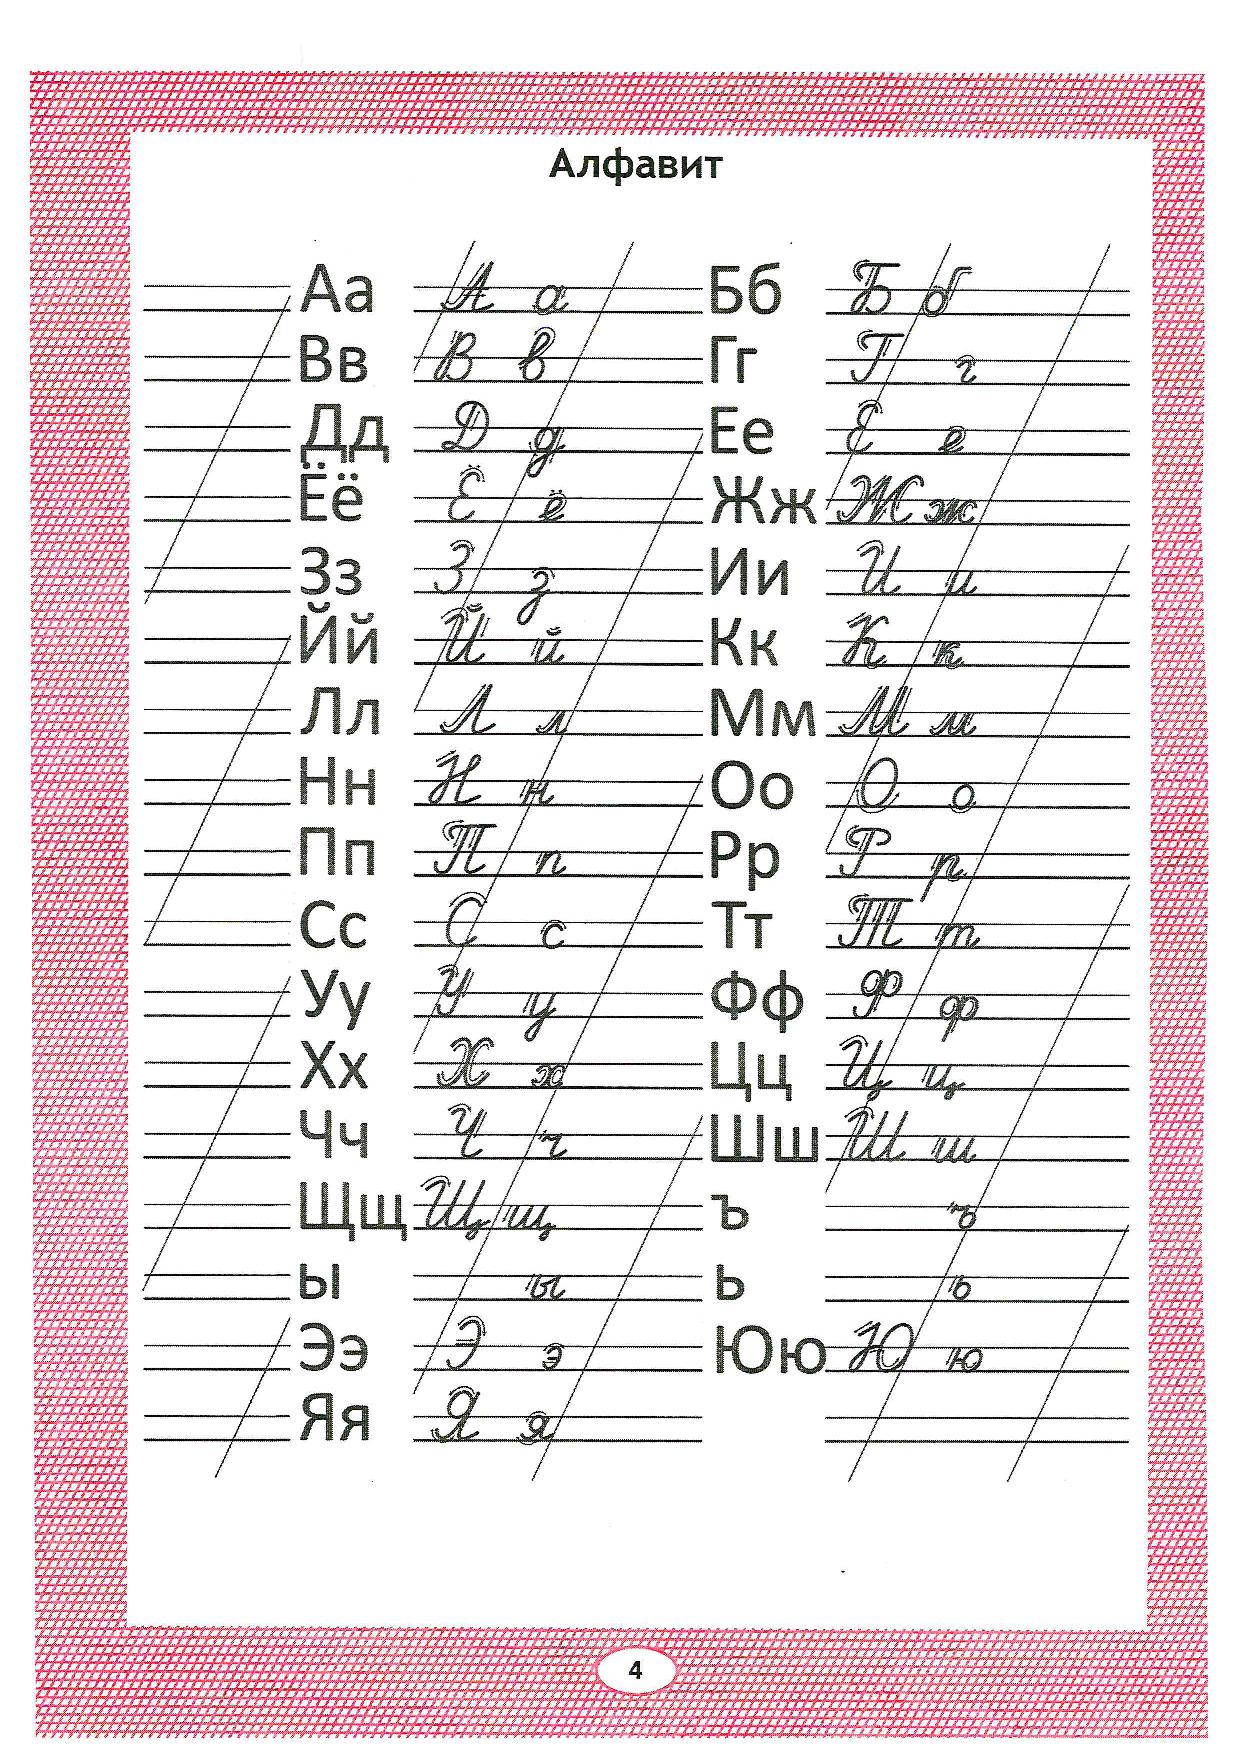 Алфавит
Аа А а Бб Б б
Вв В в Гг Г г
Дд Д д Ее Е е
Ёё Ё ё Жж Ж ж
Зз З з Ии И и
Йй Й й Кк К к
Лл Л л Мм М м
Нн Н н Оо О о
Пп П п Рр Р р
Сс С с Тт Т т
Уу У у Фф Ф ф
Хх Х х Цц Ц ц
Чч Ч ч Шш Ш ш
Щщ Щ щ ъ ъ
ы ы ь ь
Ээ Э э Юю Ю ю
Яя Я я
4